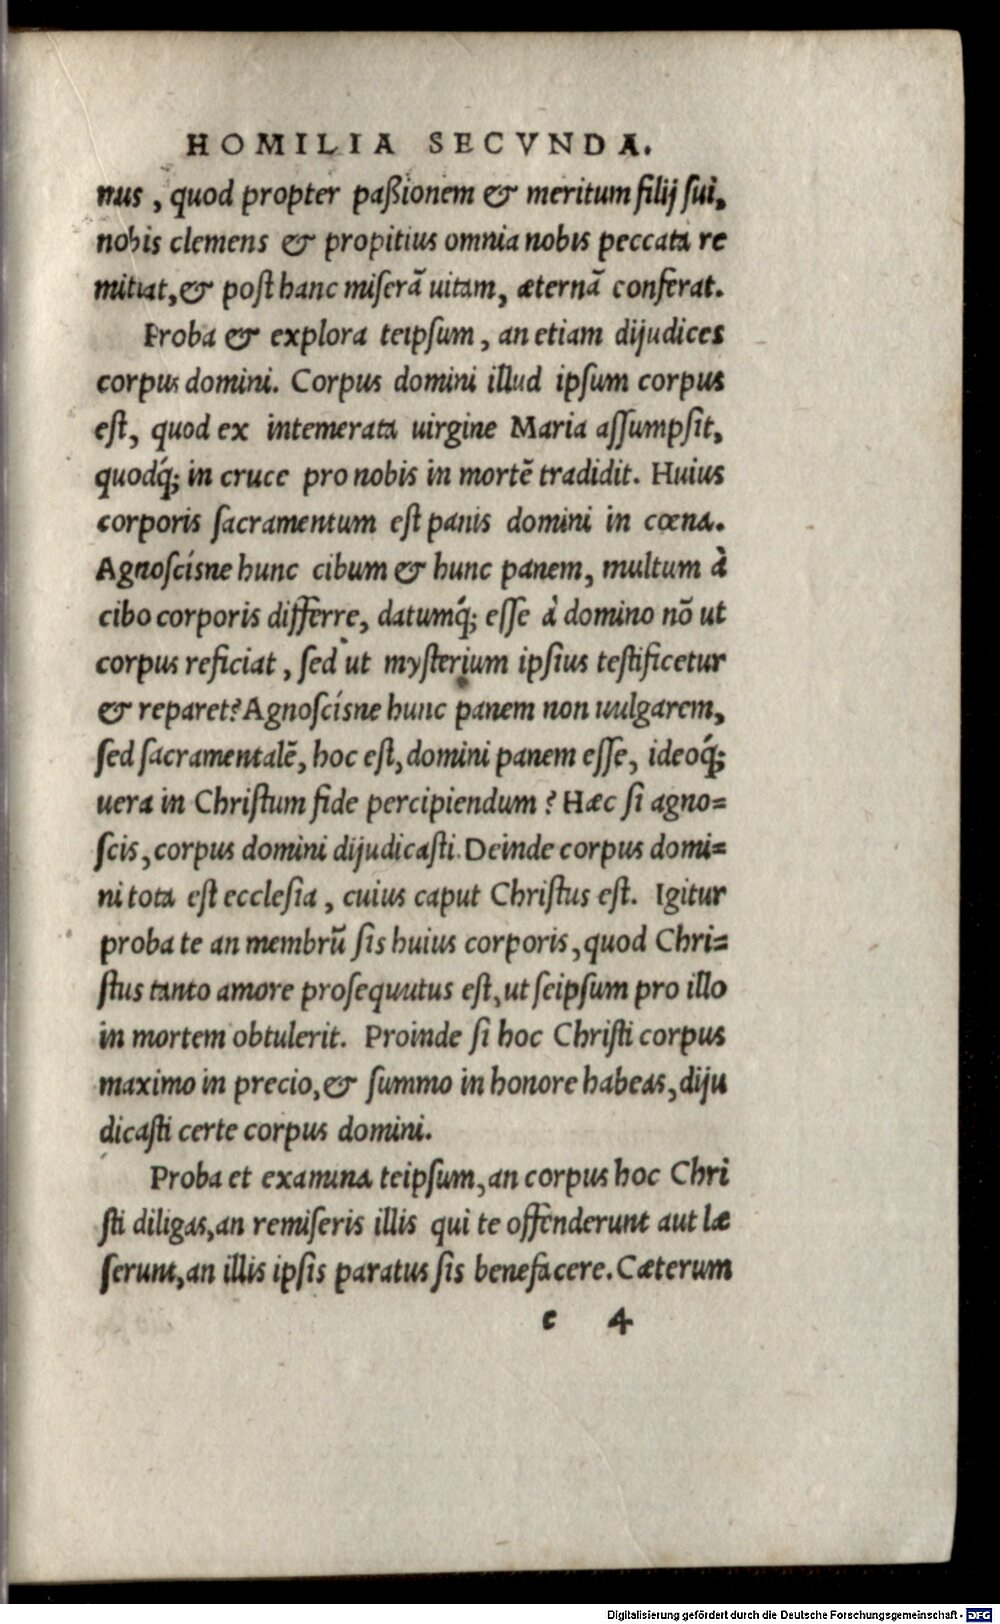 HOMILIA SECVNDA.
nus, quod propter paßionem & meritum filij sui,
nobis clemens & propitius omnia nobis peccata re
mittat, & post hanc miserã uitam, æternã conferat.
Proba & explora teipsum, an etiam dijudices
corpus domini. Corpus domini illud ipsum corpus
est, quod ex intemerata uirgine Maria assumpsit,
quodq́; in cruce pro nobis in mortẽ tradidit. Huius
corporis sacramentum est panis domini in cœna.
Agnoscísne hunc cibum & hunc panem, multum à
cibo corporis differre, datumq́; esse à domino nõ ut
corpus reficiat, sed ut mysterium ipsius testificetur
& reparet? Agnoscísne hunc panem non uulgarem,
sed sacramentalẽ, hoc est, domini panem esse, ideoq́;
uera in Christum fide percipiendum? Hæc si agno=
scis, corpus domini dijudicasti. Deinde corpus domi=
ni tota est ecclesia, cuius caput Christus est. Igitur
proba te an membrũ sis huius corporis, quod Chri=
stus tanto amore prosequutus est, ut seipsum pro illo
in mortem obtulerit. Proinde si hoc Christi corpus
maximo in precio, & summo in honore habeas, diju
dicasti certe corpus domini.
Proba et examina teipsum, an corpus hoc Chri
sti diligas, an remiseris illis qui te offenderunt aut læ
serunt, an illis ipsis paratus sis benefacere. Cæterum
c 4
Digitalisierung gefördert durch die Deutsche Forschungsgemeinschaft - DFG